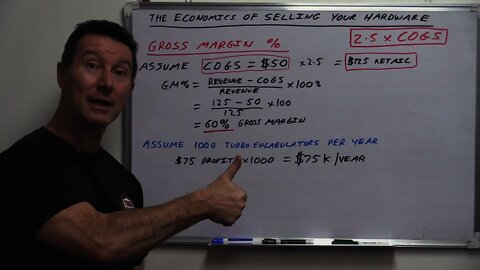 THE ECONOMICS OF SELLING YOUR HARDWARE
GROSS MARGIN % 2.5 x COGS
ASSUME COGS = $50 x 2.5 = $125 RETAIL
GM% = REVENUE - COGS x 100%
REVENUE
= 125 - 50 x 100
125
= 60% GROSS MARGIN
ASSUME 1000 TURBO ENCABULATORS PER YEAR
$75 PROFIT x 1000 = $75K/YEAR